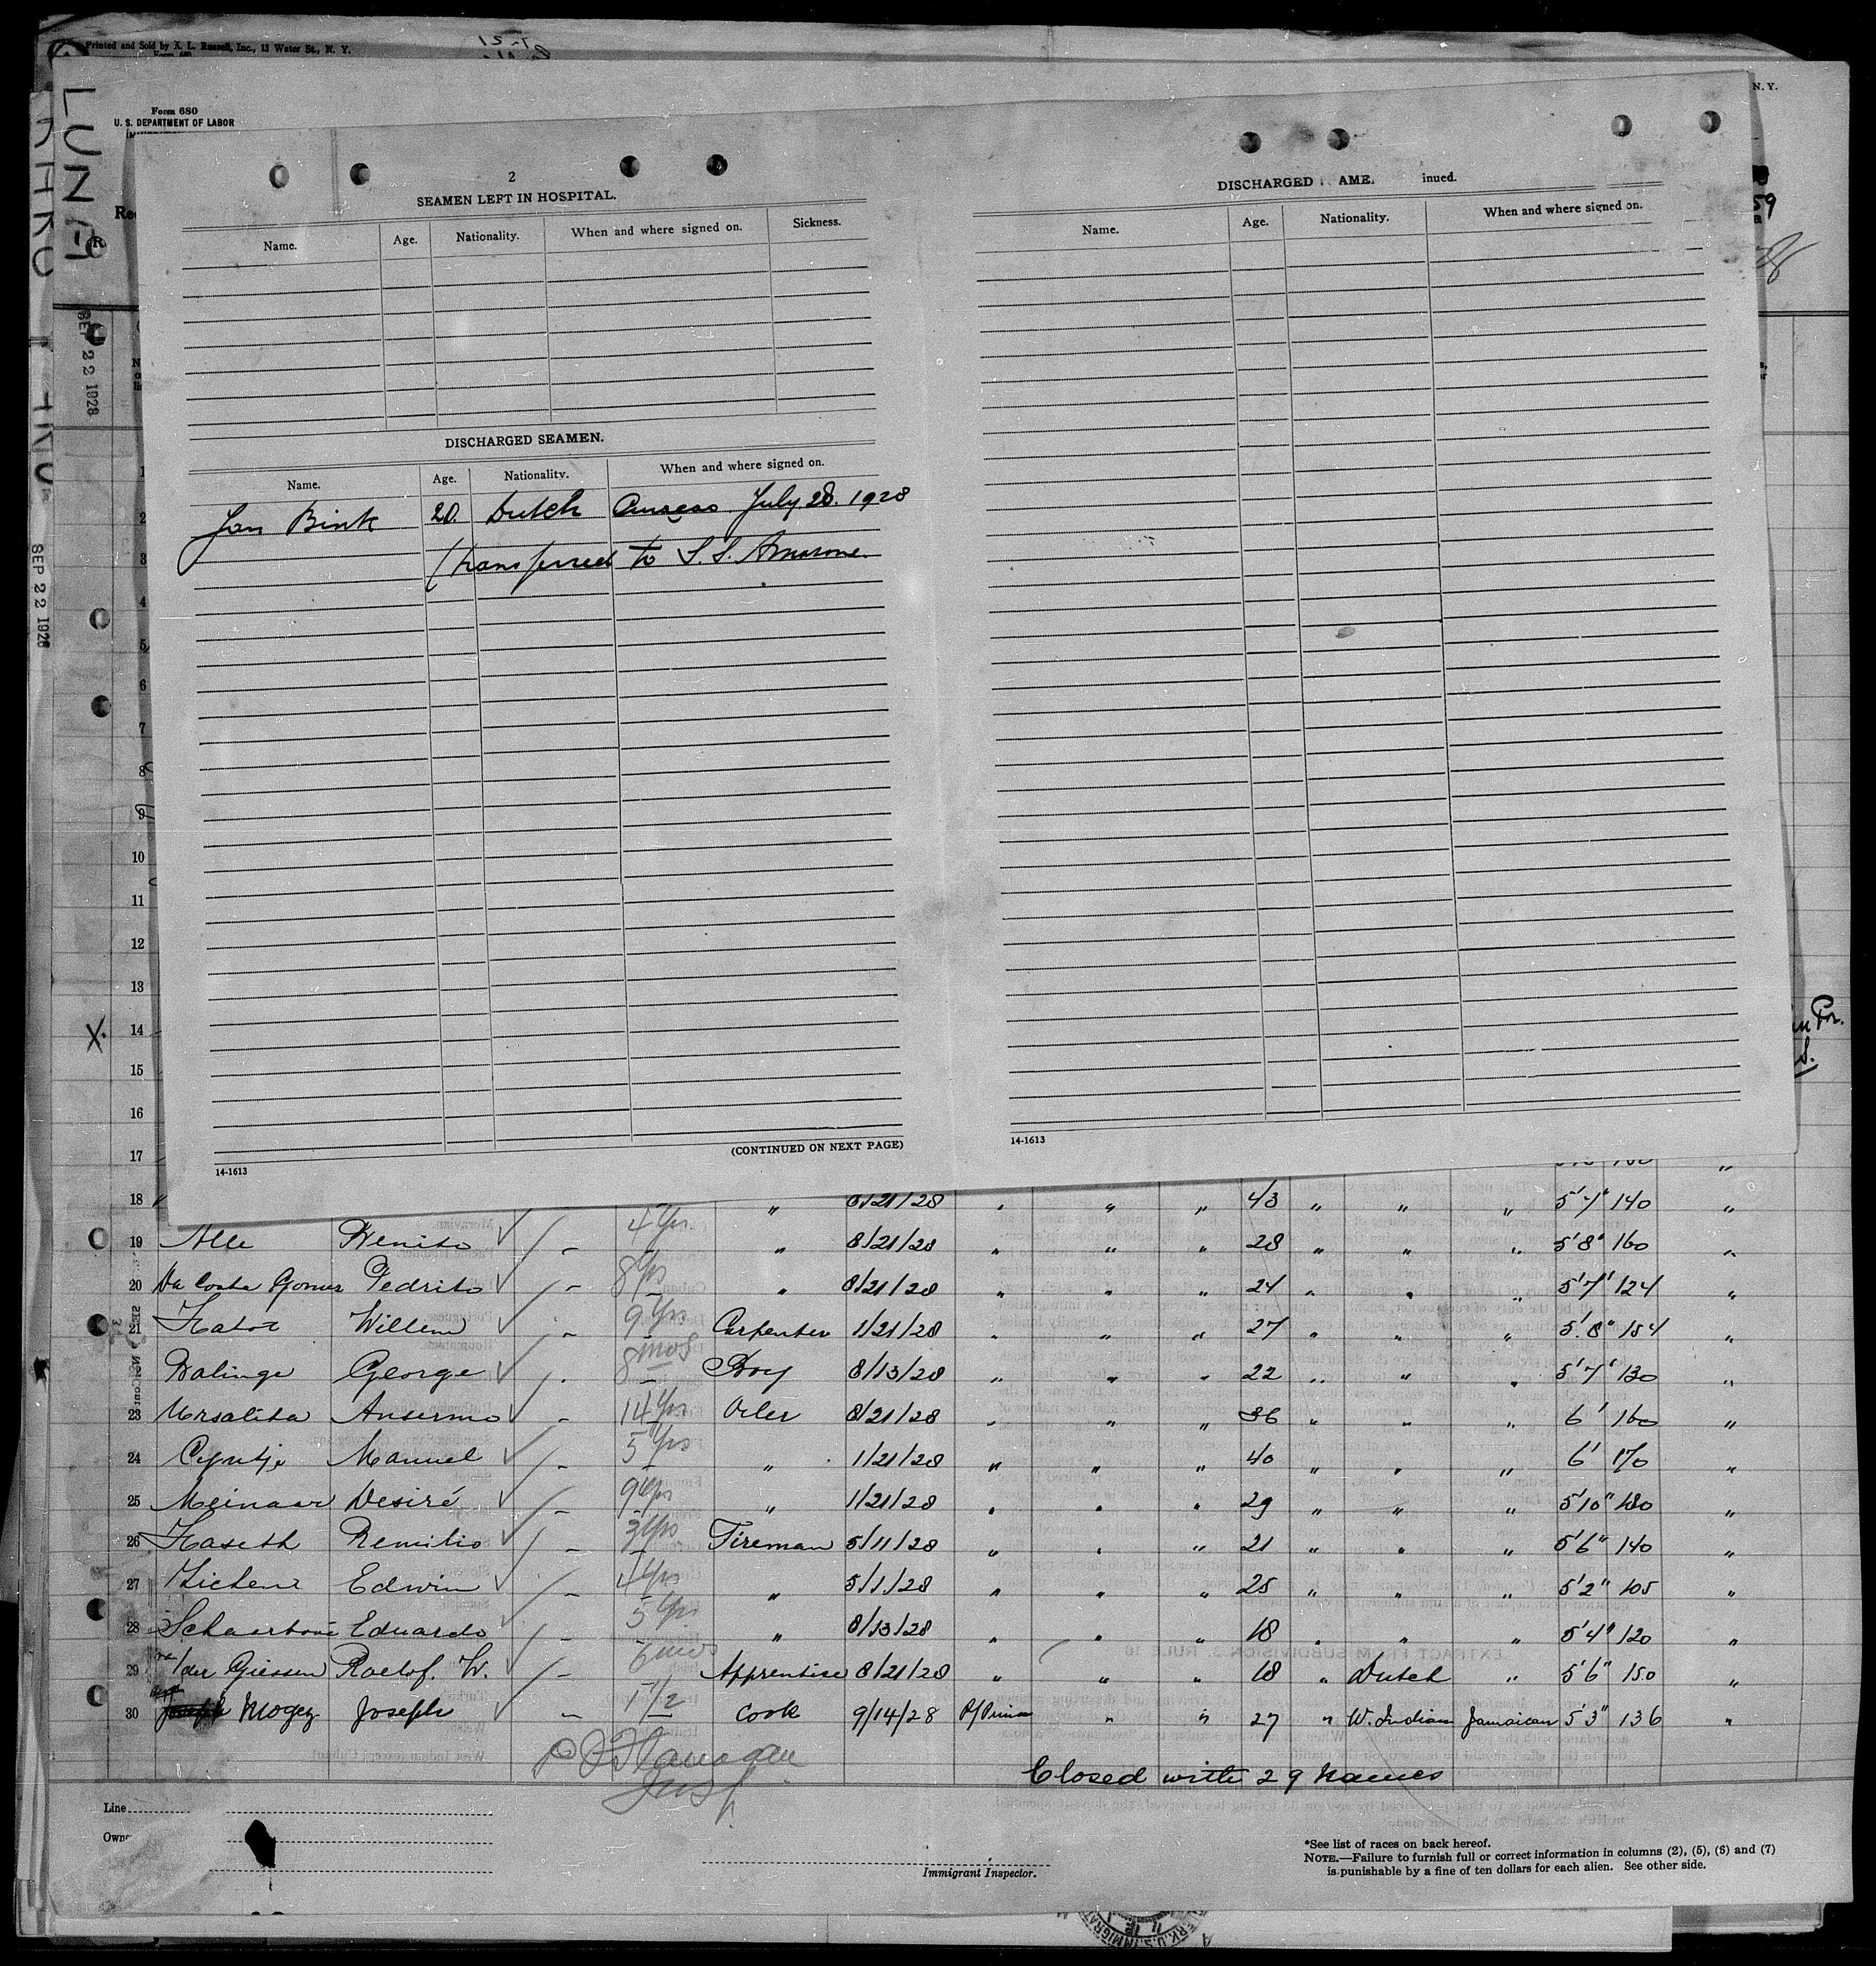 Printed and Sold by X. L. Russell, Inc., 13 Water St., N. Y.
N. Y.
Form 680
U. S. DEPARTMENT OF LABOR
LUNA
SEP 22 1928
SEP 22 1928
2
SEAMEN LEFT IN HOSPITAL.
Name. Age. Nationality. When and where signed on. Sickness.
DISCHARGED SEAMEN.
Name. Age. Nationality. When and where signed on.
Jan Bink 20. Dutch Curacao July 28. 1928
(transferred to S.S.
(CONTINUED ON NEXT PAGE)
14-1613
DISCHARGED AME. inued.
Name. Age. Nationality. When and where signed on.
14-1613
59
2
3
4
5
6
7
8
9
10
11
12
13
X. 14
15
16
17 "
18 " 8/21/28 " " " 43 " " " 5'7" 140 "
19 Alle Benito 4 Yrs. " 8/21/28 " " " 28 " " " 5'8" 160 "
20 Da Costa Gomez Pedrito 8 Yrs " 8/21/28 " " " 24 " " " 5'7" 124 "
21 Willem 9 Yrs Carpenter 1/21/28 " " " 27 " " " 5'8" 154 "
George 8 mos Boy 8/13/28 " " " 22 " " " 5'7" 130 "
23 Ursalita Ansermo 14 Yrs Oiler 8/21/28 " " " 36 " " " 6' 160 "
24 Cyntje Manuel 5 Yrs " 1/21/28 " " " 40 " " " 6' 170 "
25 Meinaar Desiré 9 Yrs " 1/21/28 " " " 29 " " " 5'10" 180 "
26 Haseth Remitio 3 Yrs Fireman 5/11/28 " " " 21 " " " 5'6" 140 "
27 Edwin 4 Yrs " 5/1/28 " " " 25 " " " 5'2" 105 "
28 Eduardo 5 Yrs " 8/13/28 " " " 18 " " " 5'4" 120 "
29 v/der Giessen Roelof. W. 6 mos Apprentice 8/21/28 " " " 18 " Dutch " 5'6" 150 "
30 Mogez Joseph 1 1/2 Cook 9/14/28 P/Prince " " 27 " W. Indian Jamaican 5'3" 136 "
Closed with 29 names
Insp.
Line
Immigrant Inspector.
*See list of races on back hereof.
NOTE.—Failure to furnish full or correct information in columns (2), (5), (6) and (7)
is punishable by a fine of ten dollars for each alien. See other side.